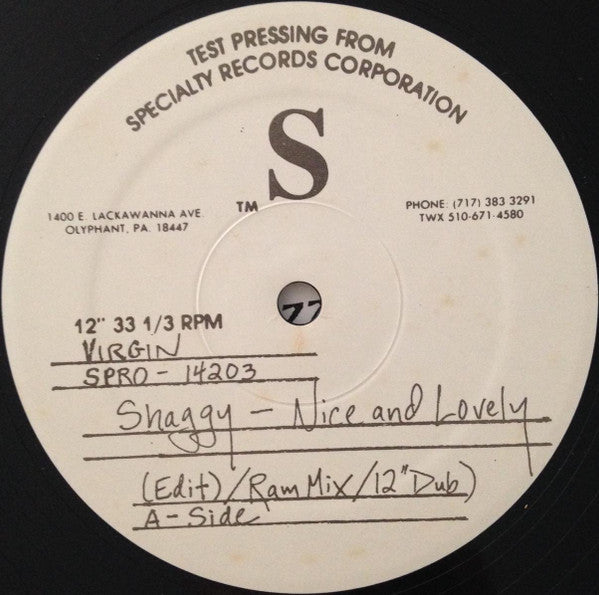 TEST PRESSING FROM
SPECIALTY RECORDS CORPORATION
S
TM
1400 E. LACKAWANNA AVE.
OLYPHANT, PA. 18447
PHONE: (717) 383 3291
TWX 510-671-4580
12" 33 1/3 RPM
VIRGIN
SPRO - 14203
Shaggy - Nice and Lovely
(Edit)/Ram Mix/12" Dub)
A-Side